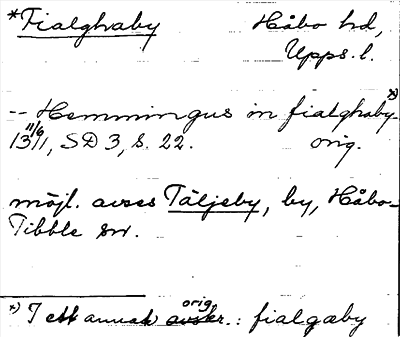 *Fialghaby Håbo hd,
Upps. l.
-- Hemmingus in fialghaby *)
13 11/6 11, SD 3, s. 22. orig.
möjl. avses Täljeby, by, Håbo-
Tibble sn.
*) I ett annat orig.: fialgæby